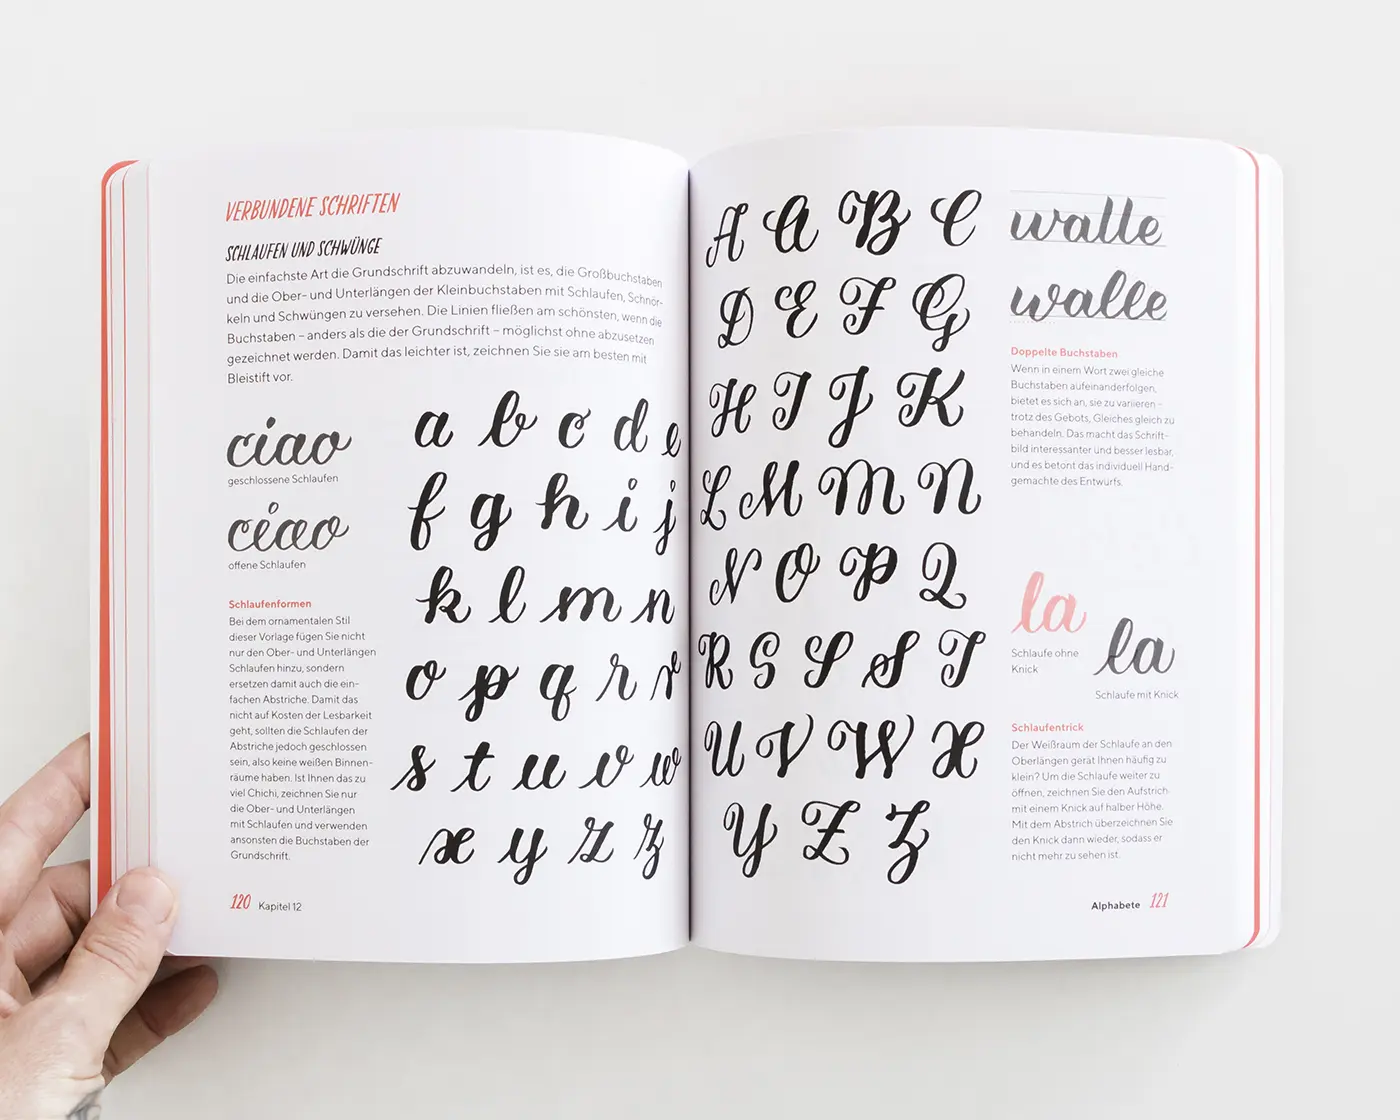 VERBUNDENE SCHRIFTEN
SCHLAUFEN UND SCHWÜNGE
Die einfachste Art die Grundschrift abzuwandeln, ist es, die Großbuchstaben
und die Ober- und Unterlängen der Kleinbuchstaben mit Schlaufen, Schnör-
keln und Schwüngen zu versehen. Die Linien fließen am schönsten, wenn die
Buchstaben – anders als die der Grundschrift – möglichst ohne abzusetzen
gezeichnet werden. Damit das leichter ist, zeichnen Sie sie am besten mit
Bleistift vor.
ciao
geschlossene Schlaufen
ciao
offene Schlaufen
Schlaufenformen
Bei dem ornamentalen Stil
dieser Vorlage fügen Sie nicht
nur den Ober- und Unterlängen
Schlaufen hinzu, sondern
ersetzen damit auch die ein-
fachen Abstriche. Damit das
nicht auf Kosten der Lesbarkeit
geht, sollten die Schlaufen der
Abstriche jedoch geschlossen
sein, also keine weißen Binnen-
räume haben. Ist Ihnen das zu
viel Chichi, zeichnen Sie nur
die Ober- und Unterlängen
mit Schlaufen und verwenden
ansonsten die Buchstaben der
Grundschrift.
a b c d e
f g h i j
k l m n
o p q r r
s t u v w
x y z z
120 Kapitel 12
A A B C
D E F G
H I J K
L M M N
N O P Q
R S S S T
U V W X
Y Z Z
walle
walle
Doppelte Buchstaben
Wenn in einem Wort zwei gleiche
Buchstaben aufeinanderfolgen,
bietet es sich an, sie zu variieren –
trotz des Gebots, Gleiches gleich zu
behandeln. Das macht das Schrift-
bild interessanter und besser lesbar,
und es betont das individuell Hand-
gemachte des Entwurfs.
la
Schlaufe ohne
Knick
la
Schlaufe mit Knick
Schlaufentrick
Der Weißraum der Schlaufe an den
Oberlängen gerät Ihnen häufig zu
klein? Um die Schlaufe weiter zu
öffnen, zeichnen Sie den Aufstrich
mit einem Knick auf halber Höhe.
Mit dem Abstrich überzeichnen Sie
den Knick dann wieder, sodass er
nicht mehr zu sehen ist.
Alphabete 121